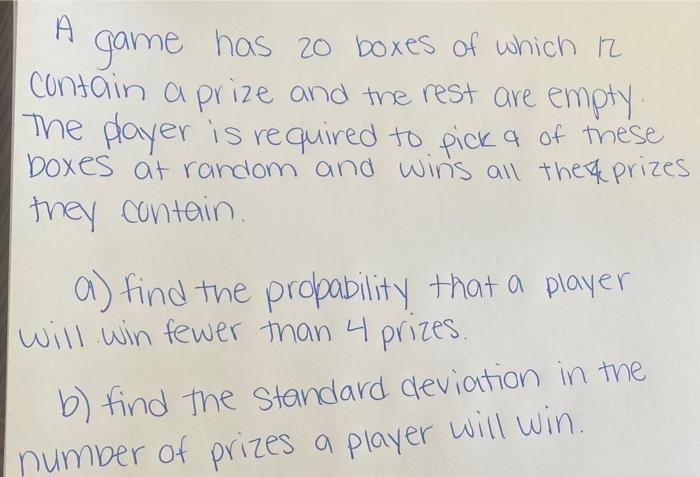 A game has 20 boxes of which 12
contain a prize and the rest are empty.
The player is required to pick 9 of these
boxes at random and wins all the prizes
they contain.
a) find the probability that a player
will win fewer than 4 prizes.
b) find the standard deviation in the
number of prizes a player will win.